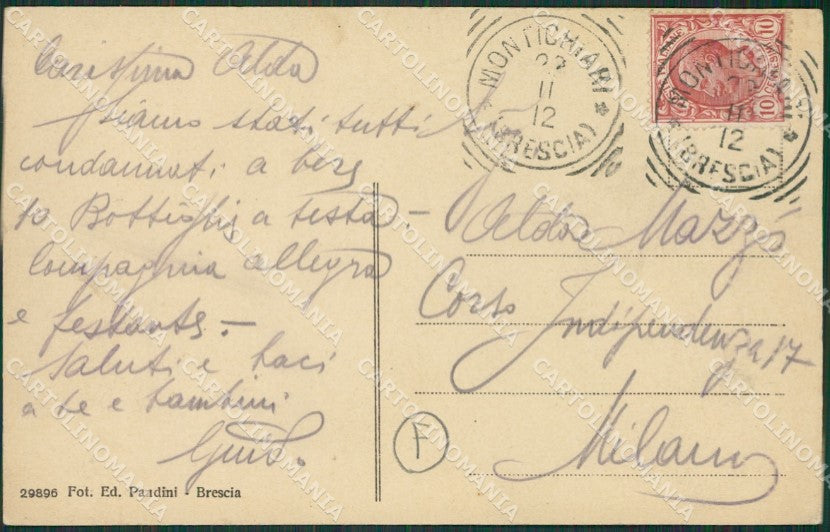 Carissima Alda
siamo stati tutti
condannati a bere
10 Bottiglie a testa -
Compagnia allegra
e festante. -
Saluti e baci
a te e bambini
Guido.
29896 Fot. Ed. Pandini - Brescia
MONTICHIARI
22
11
12
* (BRESCIA) *
MONTICHIARI
22
11
12
* (BRESCIA) *
10
10
Alda Mazzò
Corso Indipendenza 17
Milano
F
CARTOLINOMANIA